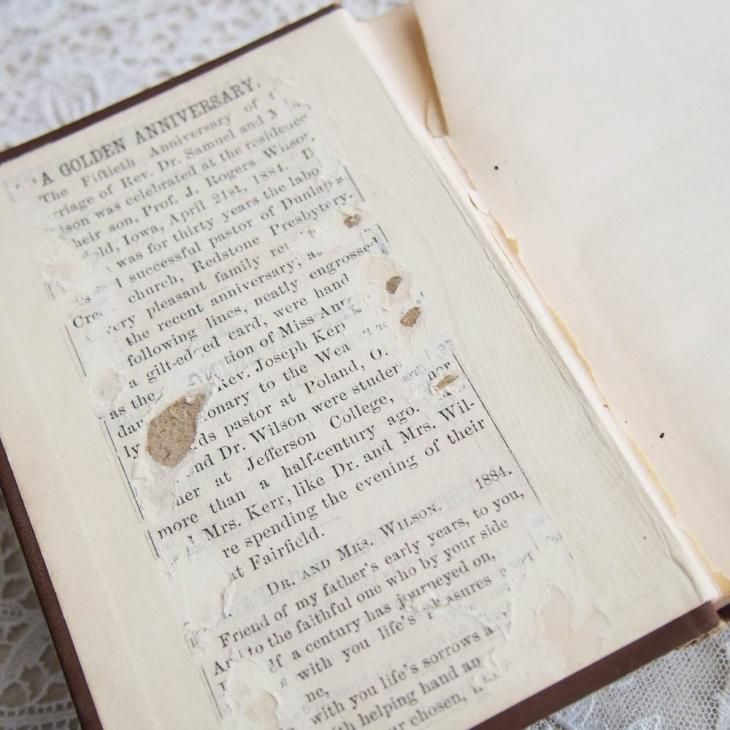 A GOLDEN ANNIVERSARY.
The Fiftieth Anniversary of
riage of Rev. Dr. Samuel and
son was celebrated at the residence
heir son, Prof. J. Rogers Wilson
ld, Iowa, April 21st, 1884.
was for thirty years the labo
successful pastor of Dunlap's
church, Redstone Presbytery.
ery pleasant family
the recent anniversary,
following lines, neatly engrossed
a gilt-ed ed card, were hand
as the tion of Miss
Rev. Joseph Kerr
onary to the
ds pastor at Poland, O.
nd Dr. Wilson were studen
her at Jefferson College,
more than a half-century ago.
Mrs. Kerr, like Dr. and Mrs. Wil-
re spending the evening of their
at Fairfield.
1884.
DR. AND MRS. WILSON.
Friend of my father's early years, to you,
And to the faithful one who by your side
lf a century has journeyed on,
with you life's pleasures
ne,
with you life's sorrows
th helping hand an
ur chosen,